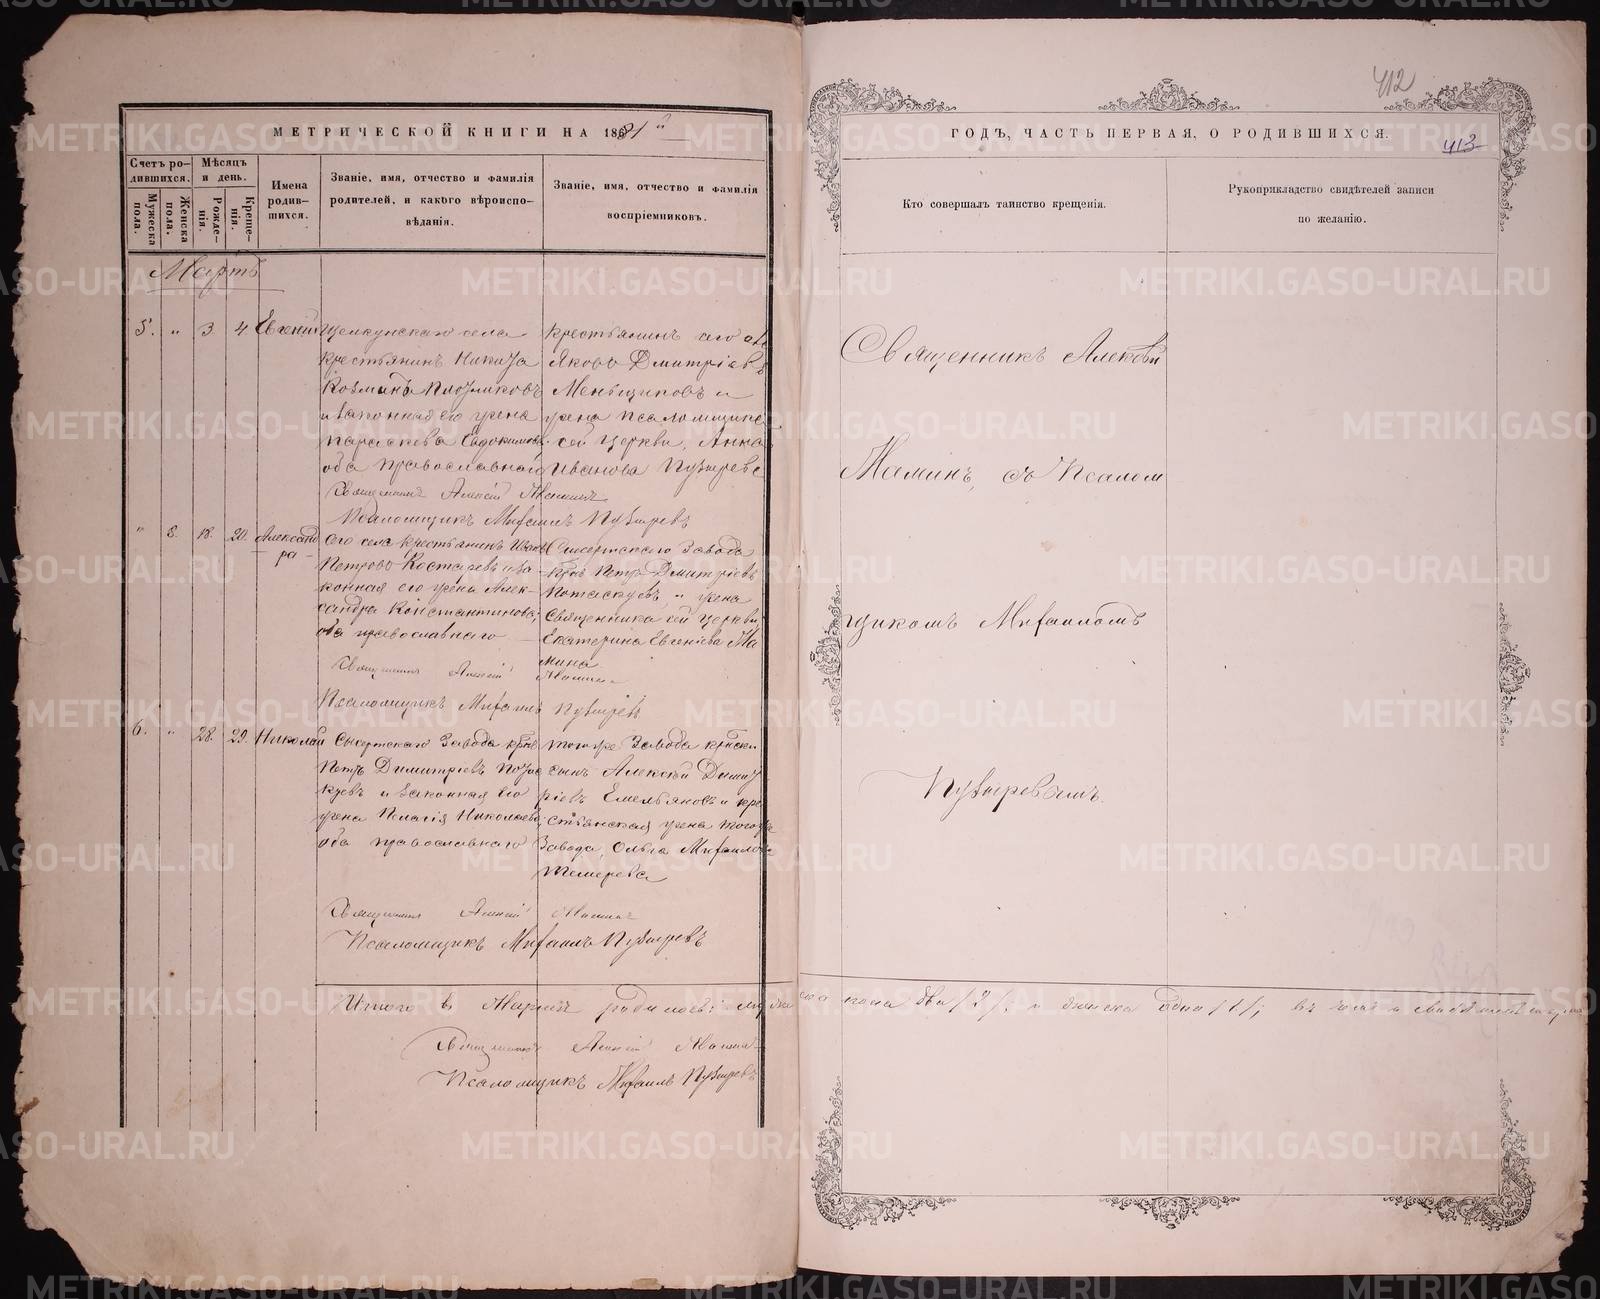 МЕТРИЧЕСКОЙ КНИГИ НА 1881й
Счетъ родившихся.
Мужеска пола.
Женска пола.
Мѣсяцъ и день.
Рожденія.
Крещенія.
Имена родившихся.
Званіе, имя, отчество и фамилія родителей, и какого вѣроисповѣданія.
Званіе, имя, отчество и фамилія воспріемниковъ.
Мартъ
5. „ 3 4 Евгений
Щелкунскаго села
крестьянинъ Никита
Козминъ
и законная его жена
Параскева Евдокимова
оба православнаго
крестьянинъ сего
Яковъ Дмитріевъ
Меньщиковъ и
жена псаломщика
сей церкви, Анна
Иванова Пузырева
Священникъ Алексій Маминъ
Псаломщикъ Михаилъ Пузыревъ
„ 8. 18. 20. Александра
Сего села крестьянинъ Иванъ
Петровъ Костаревъ и законная
его жена Александра
Константиновна,
оба православнаго
Сысертскаго Завода
Петръ Дмитріевъ
Потаскуевъ, и жена
Священника сей церкви
Екатерина Евгеніева Мамина
Священникъ Алексій Маминъ
Псаломщикъ Михаилъ Пузыревъ
6. „ 28. 29. Николай
Сысертскаго Завода
Петръ Димитріевъ Потаскуевъ
и законная его
жена Пелагія Николаева,
оба православнаго
тогоже Завода
сынъ Алексѣй Димитріевъ
Емельяновъ и крестьянская
жена тогоже
Завода, Ольга Михайлова
Священникъ Алексій Маминъ
Псаломщикъ Михаилъ Пузыревъ
Итого въ Мартѣ родилось: мужеска пола два /2/ и женска одна /1/;
Священникъ Алексій Маминъ
Псаломщикъ Михаилъ Пузыревъ
412
413
ГОДЪ, ЧАСТЬ ПЕРВАЯ, О РОДИВШИХСЯ.
Кто совершалъ таинство крещенія.
Рукоприкладство свидѣтелей записи по желанію.
Священникъ Алексѣй
Маминъ, съ Псалом
щикомъ Михаиломъ
Пузыревымъ.
METRIKI.GASO-URAL.RU